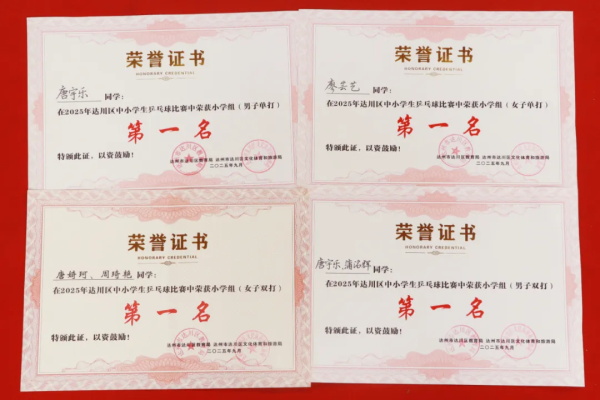 荣誉证书
HONORARY CREDENTIAL
唐宇乐 同学：
在2025年达川区中小学生乒乓球比赛中荣获小学组（男子单打）
第一名
特颁此证，以资鼓励！
达州市达川区教育局 达州市达川区文化体育和旅游局
二〇二五年九月
荣誉证书
HONORARY CREDENTIAL
同学：
在2025年达川区中小学生乒乓球比赛中荣获小学组（女子单打）
第一名
特颁此证，以资鼓励！
达州市达川区教育局 达州市达川区文化体育和旅游局
二〇二五年九月
荣誉证书
HONORARY CREDENTIAL
唐婧珂、周琦艳 同学：
在2025年达川区中小学生乒乓球比赛中荣获小学组（女子双打）
第一名
特颁此证，以资鼓励！
达州市达川区教育局 达州市达川区文化体育和旅游局
二〇二五年九月
荣誉证书
HONORARY CREDENTIAL
唐宇乐、蒲 同学：
在2025年达川区中小学生乒乓球比赛中荣获小学组（男子双打）
第一名
特颁此证，以资鼓励！
达州市达川区教育局 达州市达川区文化体育和旅游局
二〇二五年九月